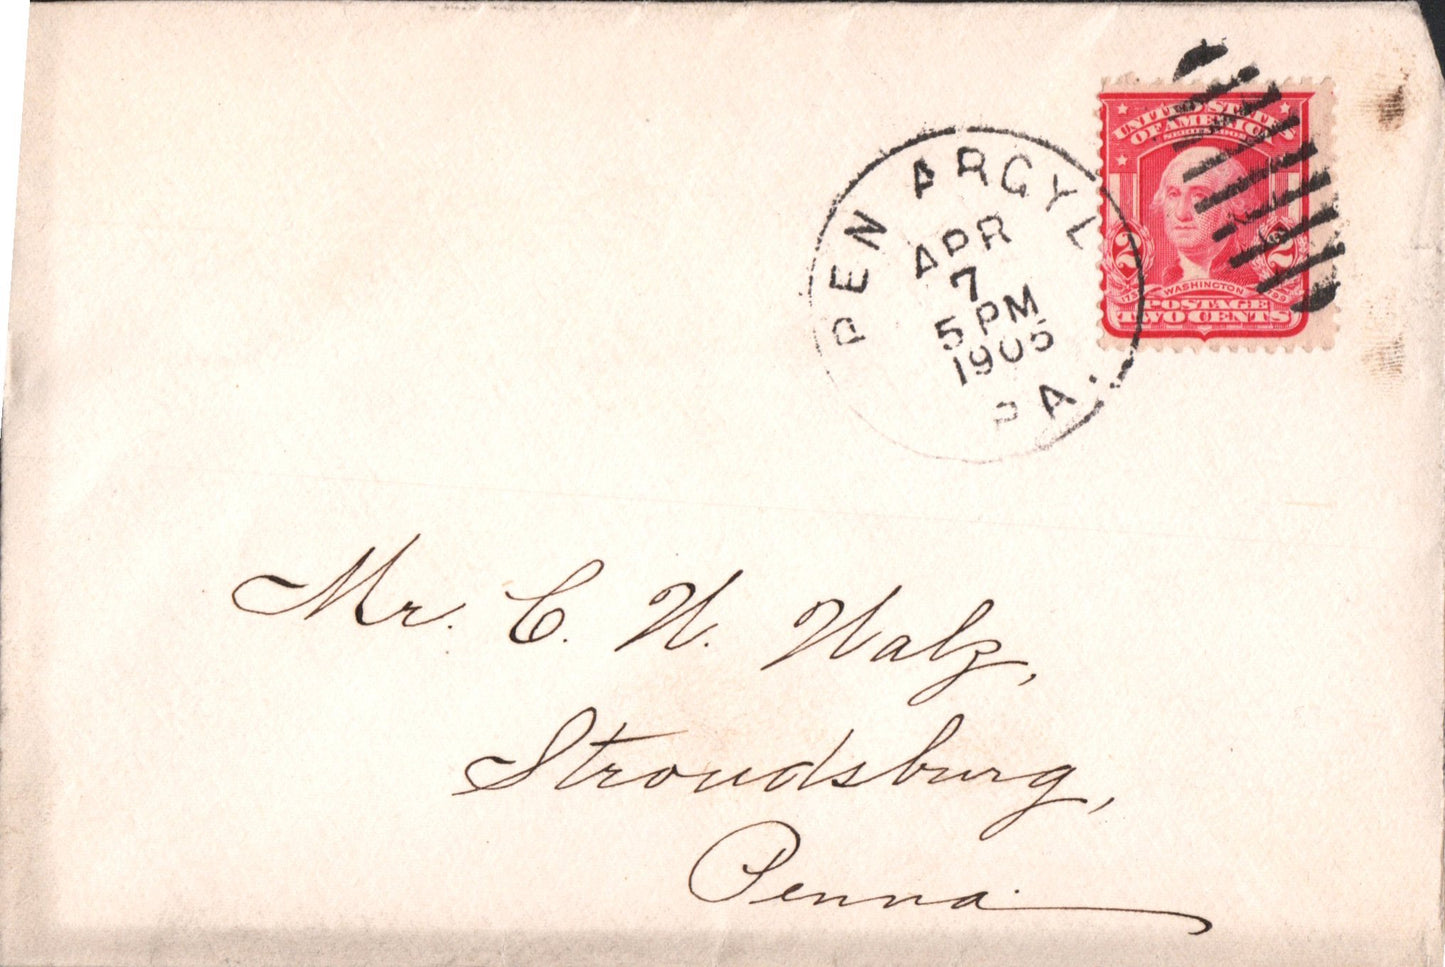 UNITED STATES
OF AMERICA
SERIES 1902
2 2
WASHINGTON
POSTAGE
TWO CENTS
PEN ARGYL
APR
7
5 PM
1905
PA.
Mr. C. W. Walz,
Stroudsburg,
Penna.